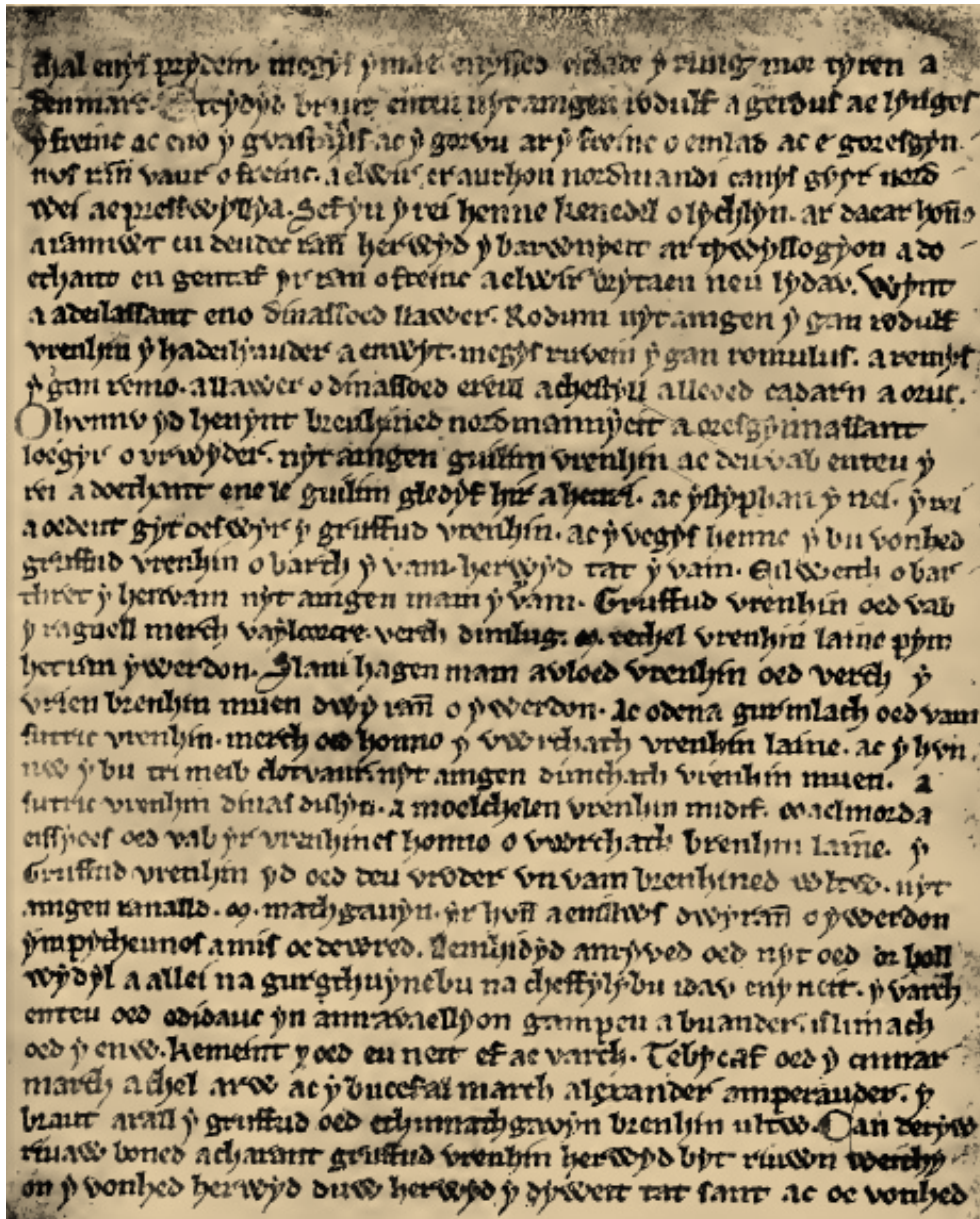 enys prydein megys ymae enyssed y rung mor tyren a
denmarc. Trydyd braut enteu nyt amgen rodulf a gerdus ae lynges
y freinc ac eno y ac y gorvu ar y freinc o emlad ac e goresgyn
rann vaur o freinc. a elwir er aurhon nordmandi canys gwyr nord
wei ae presswyllya. Sef yu y rei henne kenedel o lychlyn. ar daear honn
a rannwt en deudec rann herwyd y barwnyeit ar tywyssogyon a do
ethant en gentaf yr rann o freinc a elwir brytaen neu lydav. Wynt
a adeilassant eno dinassoed llawer. Rodum nyt amgen y gan rodulf
vrenhin y hadeilyauder a enwyt. megys ruvein y gan romulus. a remys
y gan remo. a llawer o dinassoed ereill a chestyll a lleoed cadarn a oruc.
O hennv yd henynt breichyned nordmannyeit a oresgynnassant
loegyr o vrwyder. nyt amgen guilim vrenhin ac deu vab enteu y
rei a doethant ene le guilim gledyf hir a henri. ac ystyphan y nei. y rei
a oedent gyt oeswyr y gruffud vrenhin. ac y vegys henne y bu vonhed
gruffud vrenhin o barth y vam herwyd tat y vam. Eilweith o bar
thret y henvam nyt amgen mam y vam. Gruffud vrenhin oed vab
y raguell merch vaylcorcre. verch dunlug. m. techel vrenhin laine pym
het rann ywerdon. Slani hagen mam avloed vrenhin oed verch y
vrien brenhin muen dwy rann o ywerdon. Ac odena gurmlach oed vam
sutric vrenhin. merch oed honno y vwrchath vrenhin laine. ac y honn
nw y bu tri meib nyt amgen dunchath vrenhin muen. a
sutric vrenhin dinas dulyn. a moelchelen vrenhin midif. maelmorda
eissyoes oed vab yr vrenhines honno o vwrchath brenhin laine. y
Gruffud vrenhin yd oed deu vroder vn vam brenhined wltw. nyt
amgen ranalld. m. mathgauyn. yr honn a ennillws dwy rann o ywerdon
ym pytheunos a mis oe dewred. Lemhidyd anryved oed nyt oed or holl
wydyl a allei na gurthuynebu na cheffylybu idav eny neit. y varch
enteu oed odidauc yn annavaellyon gampeu a buander. islimach
oed y enw. kemeint y oed eu neit ef ae varch. Tebycaf oed y cinnar
march achel arw ac y bucefal march alexander amperauder. y
braut arall y gruffud oed ethminathgavyn brenhin ultw. Can deryw
riuaw boned acharant gruffud vrenhin herwyd byt riuwn weithy
on y vonhed herwyd duw herwyd y dyweit tat sant ac oe vonhed